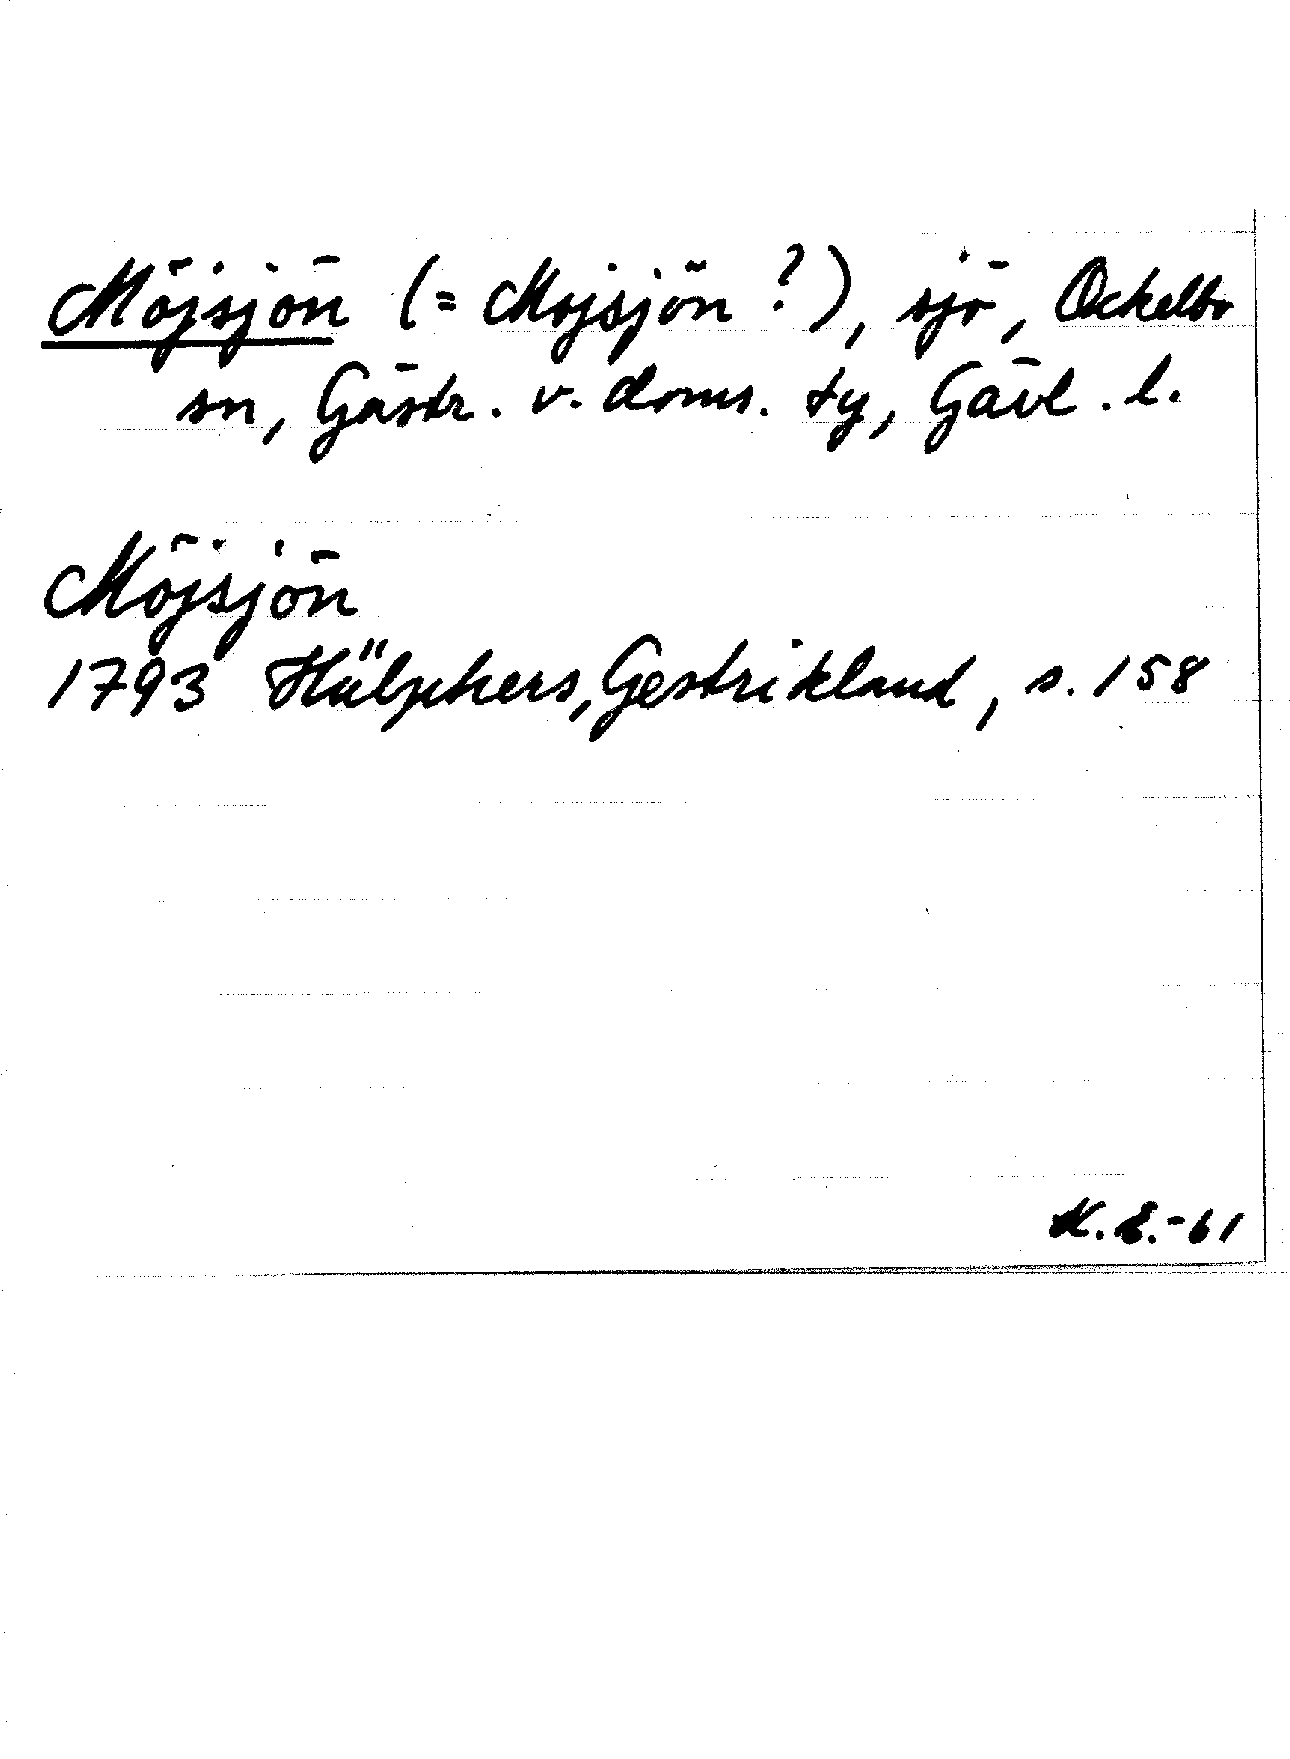 Möjsjön (= Mojsjön?), sjö, Ockelbo
sn, Gästr. v. doms. ty, Gävl. l.
Möjsjön
1793 Hülphers, Gestrikland, s. 158
K.E.-61